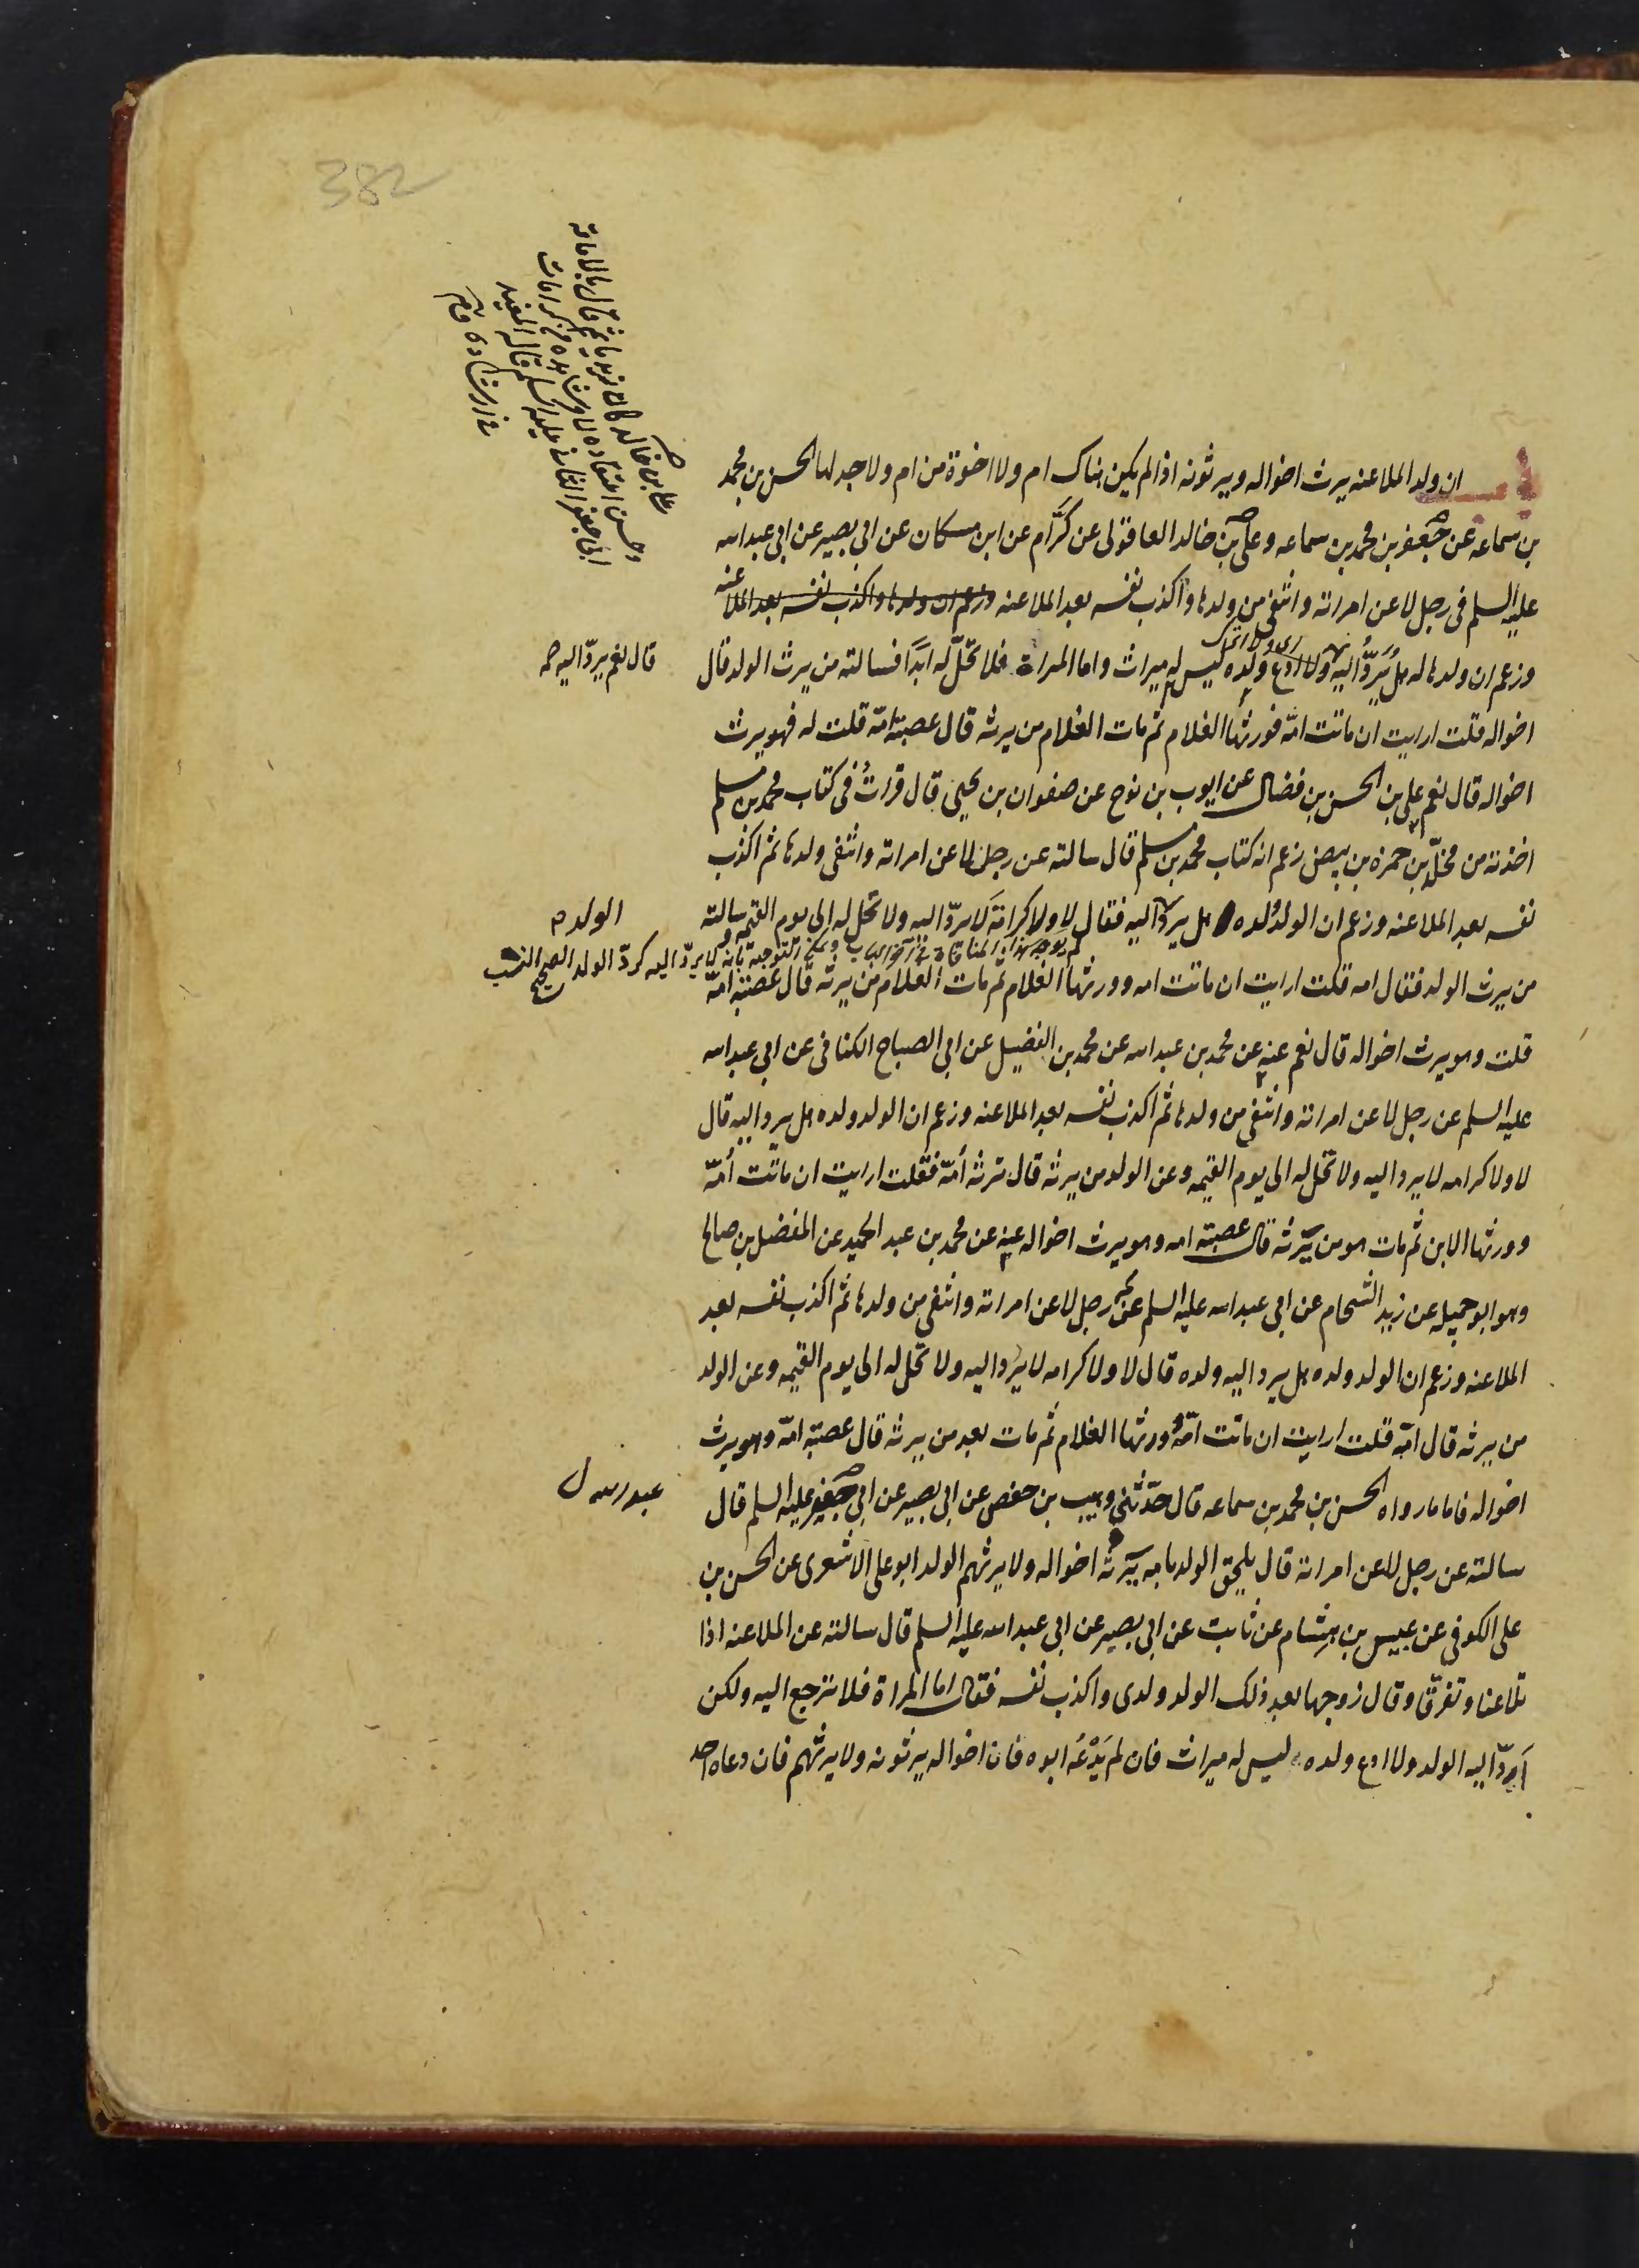 382
باب ان ولد الملاعنه يرث اخواله ويرثونه اذا لم يكن هناك ام ولا اخوة من ام ولا جد لها الحسن بن محمد
بن سماعه عن جعفر بن محمد بن سماعه وعلى بن خالد العاقولى عن كرّام عن ابن مسكان عن ابى بصير عن ابى عبد الله
عليه السلم فى رجل لاعن امراته وانتفى من ولدها واكذب نفسه بعد الملاعنه وزعم ان ولدها واكذب نفسه بعد الملاعنه
وزعم ان ولدها له هل يُردُّ اليه ولا ادع ولده ليس له ميراث واما المراة فلا تحلّ له ابدًا فسالته من يرث الولد قال
قال نعم يردّ اليه
اخواله قلت ارايت ان ماتت امّه فورثها الغلام ثم مات الغلام من يرثه قال عصبة امّه قلت له فهو يرث
اخواله قال نعم على بن الحسن بن فضال عن ايوب بن نوح عن صفوان بن يحيى قال قراتُ فى كتاب محمد بن مسلم
اخذته من مخلّد بن حمزه بن بيض زعم انه كتاب محمد بن مسلم قال سالته عن رجل لاعن امراته وانتفى ولدها ثم اكذب
نفسه بعد الملاعنه وزعم ان الولد ولده هل يردّ اليه فقال لا ولا كرامة لا يردّ اليه ولا تحل له الى يوم القيمه سالته
الولد
من يرث الولد فقال امه قلت ارايت ان ماتت امه وورثها الغلام ثم مات الغلام من يرثه قال عصبة امّه
لا يردّ اليه كردّ الولد الصحيح النسب
قلت وهو يرث اخواله قال نعم عنه عن محمد بن عبد الله عن محمد بن الفضيل عن ابى الصباح الكنانى عن ابى عبد الله
عليه السلم عن رجل لاعن امراته وانتفى من ولدها ثم اكذب نفسه بعد الملاعنه وزعم ان الولد ولده هل يرد اليه قال
لا ولا كرامه لا يرد اليه ولا تحل له الى يوم القيمه وعن الولد من يرثه قال ترثه امّه فقلت ارايت ان ماتت اُمّه
وورثها الابن ثم مات هو من يرثه قال عصبة امه وهو يرث اخواله عنه عن محمد بن عبد الحميد عن المفضل بن صالح
وهو ابو جميله عن زيد الشحام عن ابى عبد الله عليه السلم عن رجل لاعن امراته وانتفى من ولدها ثم اكذب نفسه بعد
الملاعنه وزعم ان الولد ولده هل يرد اليه ولده قال لا ولا كرامه لا يرد اليه ولا تحل له الى يوم القيمه وعن الولد
من يرثه قال امّه قلت ارايت ان ماتت امّه وورثها الغلام ثم مات بعد من يرثه قال عصبة امّه وهو يرث
اخواله فاما ما رواه الحسن بن محمد بن سماعه قال حدّثنى وهيب بن حفص عن ابى بصير عن ابى جعفر عليه السلم قال
عبد الله
سالته عن رجل لاعن امراته قال يلحق الولد بامه يرثه اخواله ولا يرثهم الولد ابو على الاشعرى عن الحسن بن
على الكوفى عن عبيس بن هشام عن ثابت عن ابى بصير عن ابى عبد الله عليه السلم قال سالته عن الملاعنه اذا
تلاعنا وتفرقّا وقال زوجها بعد ذلك الولد ولدى واكذب نفسه فقال اما المراة فلا ترجع اليه ولكن
اردّ اليه الولد ولا ادع ولده ليس له ميراث فان لم يَدْعُه ابوه فان اخواله يرثونه ولا يرثهم فان دعاه احد